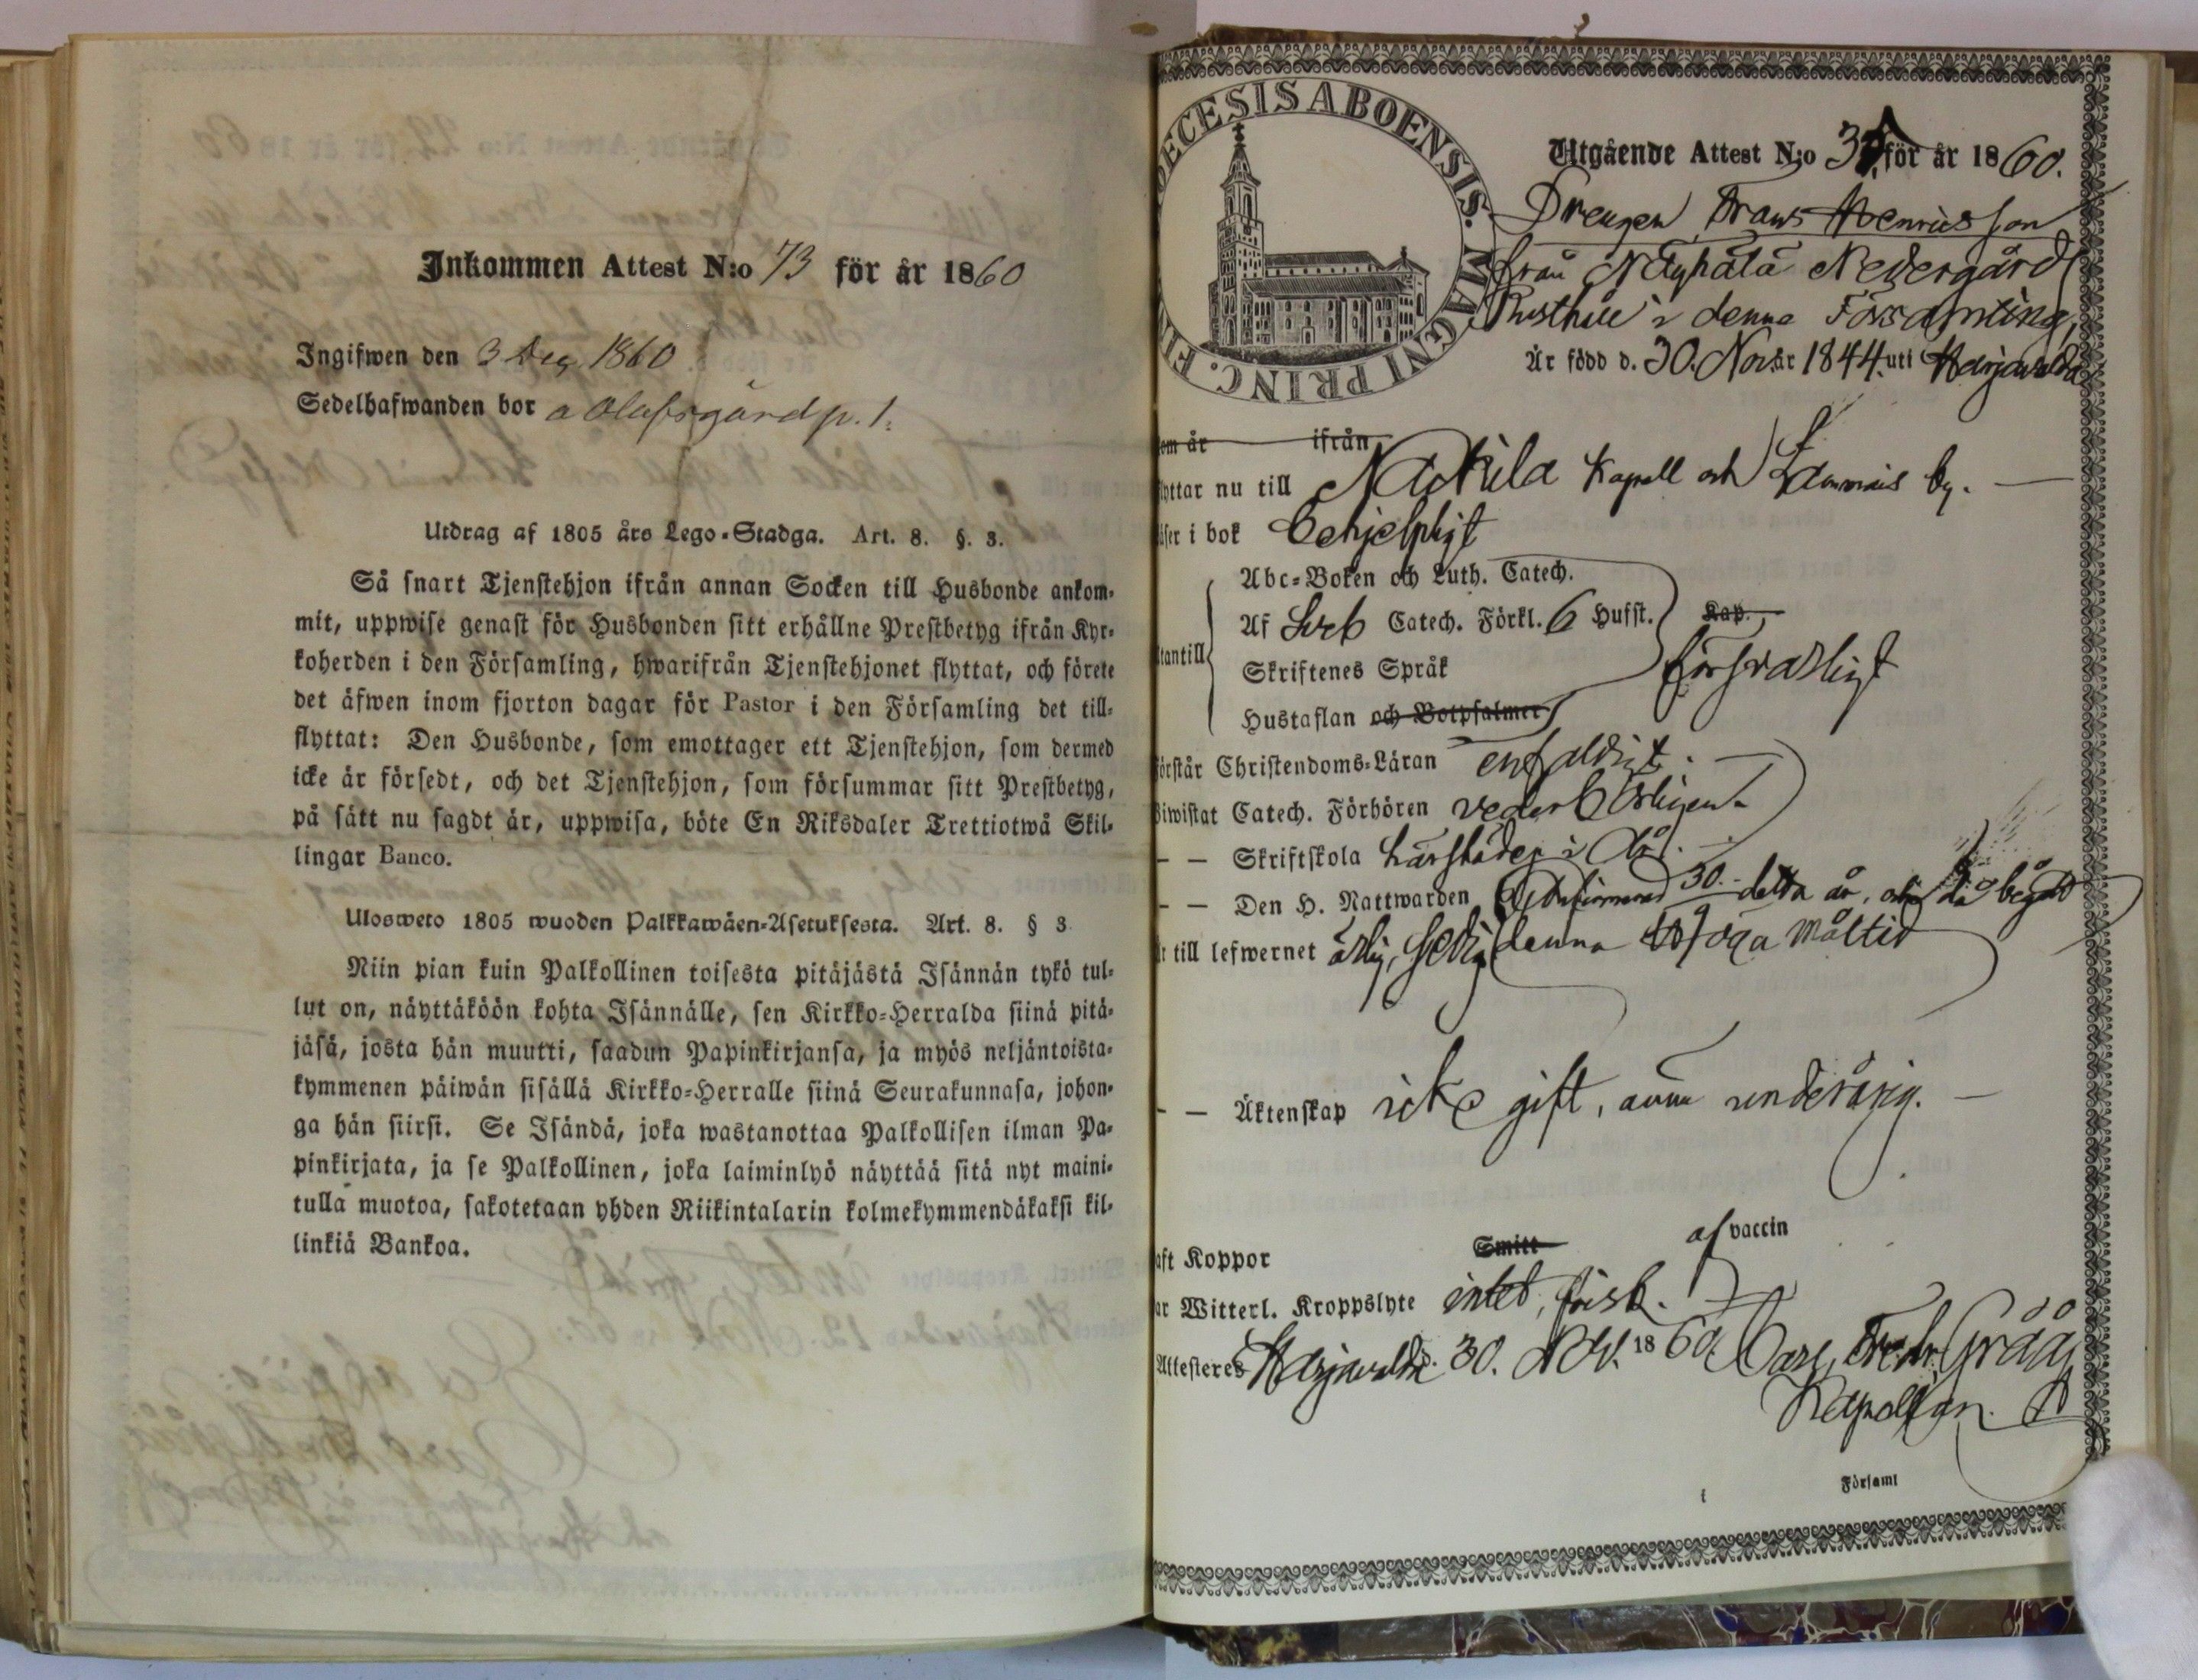 Inkommen Attest N:o 73 för år 1860
Ingifwen den 3 Dec 1860
Sedelhafwanden bor a Olafsgård p. 1.
Utdrag af 1805 års Lego-Stadga. Art. 8. §. 3.
Så snart Tjenstehjon ifrån annan Socken till Husbonde ankom-
mit, uppwise genast för Husbonden sitt erhållne Prestbetyg ifrån Kyr-
koherden i den Församling, hwarifrån Tjenstehjonet flyttat, och förete
det äfwen inom fjorton dagar för Pastor i den Församling det till-
flyttat: Den Husbonde, som emottager ett Tjenstehjon, som dermed
icke är försedt, och det Tjenstehjon, som försummar sitt Prestbetyg,
på sätt nu sagdt är, uppwisa, böte En Riksdaler Trettiotwå Skil-
lingar Banco.
Ulosweto 1805 wuoden Palkkawäen-Asetuksesta. Art. 8. § 3
Niin pian kuin Palkollinen toisesta pitäjästä Isännän tykö tul-
lut on, näyttäköön kohta Isännälle, sen Kirkko-Herralda siinä pitä-
jäsä, josta hän muutti, saadun Papinkirjansa, ja myös neljäntoista-
kymmenen päiwän sisällä Kirkko-Herralle siinä Seurakunnasa, johon-
ga hän siirsi. Se Isändä, joka wastanottaa Palkollisen ilman Pa-
pinkirjata, ja se Palkollinen, joka laiminlyö näyttää sitä nyt maini-
tulla muotoa, sakotetaan yhden Riikintalarin kolmekymmendäkaksi kil-
linkiä Bankoa.
ECESIS ABOENSIS. MAGNI PRINC. FIN
Utgående Attest N:o för år 1860.
Drengen Frans Henricsson
från Näyhälä Nedergård
Rusthåll i denna Församling,
Är född d. 30. Nov. år 1844. uti Harjavalda
om år ifrån
yttar nu till Nackila Kapell och by.
äser i bok behjelpligt
Abc-Boken och Luth. Catech.
Af Sveb Catech. Förkl. 6 Hufst. Kap.
tantill försvarligt
Skriftenes Språk
Hustaflan och Botpsalmer
örstår Christendoms-Läran enfaldigt.
Biwistat Catech. Förhören vederbörligen
— — Skriftskola härstädes i då.
— — Den H. Nattwarden 30. detta år, och då begått
t till lefwernet ärlig, sedig denna höga Måltid
— — Äktenskap icke gift, ännu underårig.
aft Koppor Smitt af vaccin
ar Witterl. Kroppslyte intet, frisk.
Attesteres Harjavalda d. 30. Nov. 1860. Carl Fredr. Gråå,
Kapellan.
i Församl